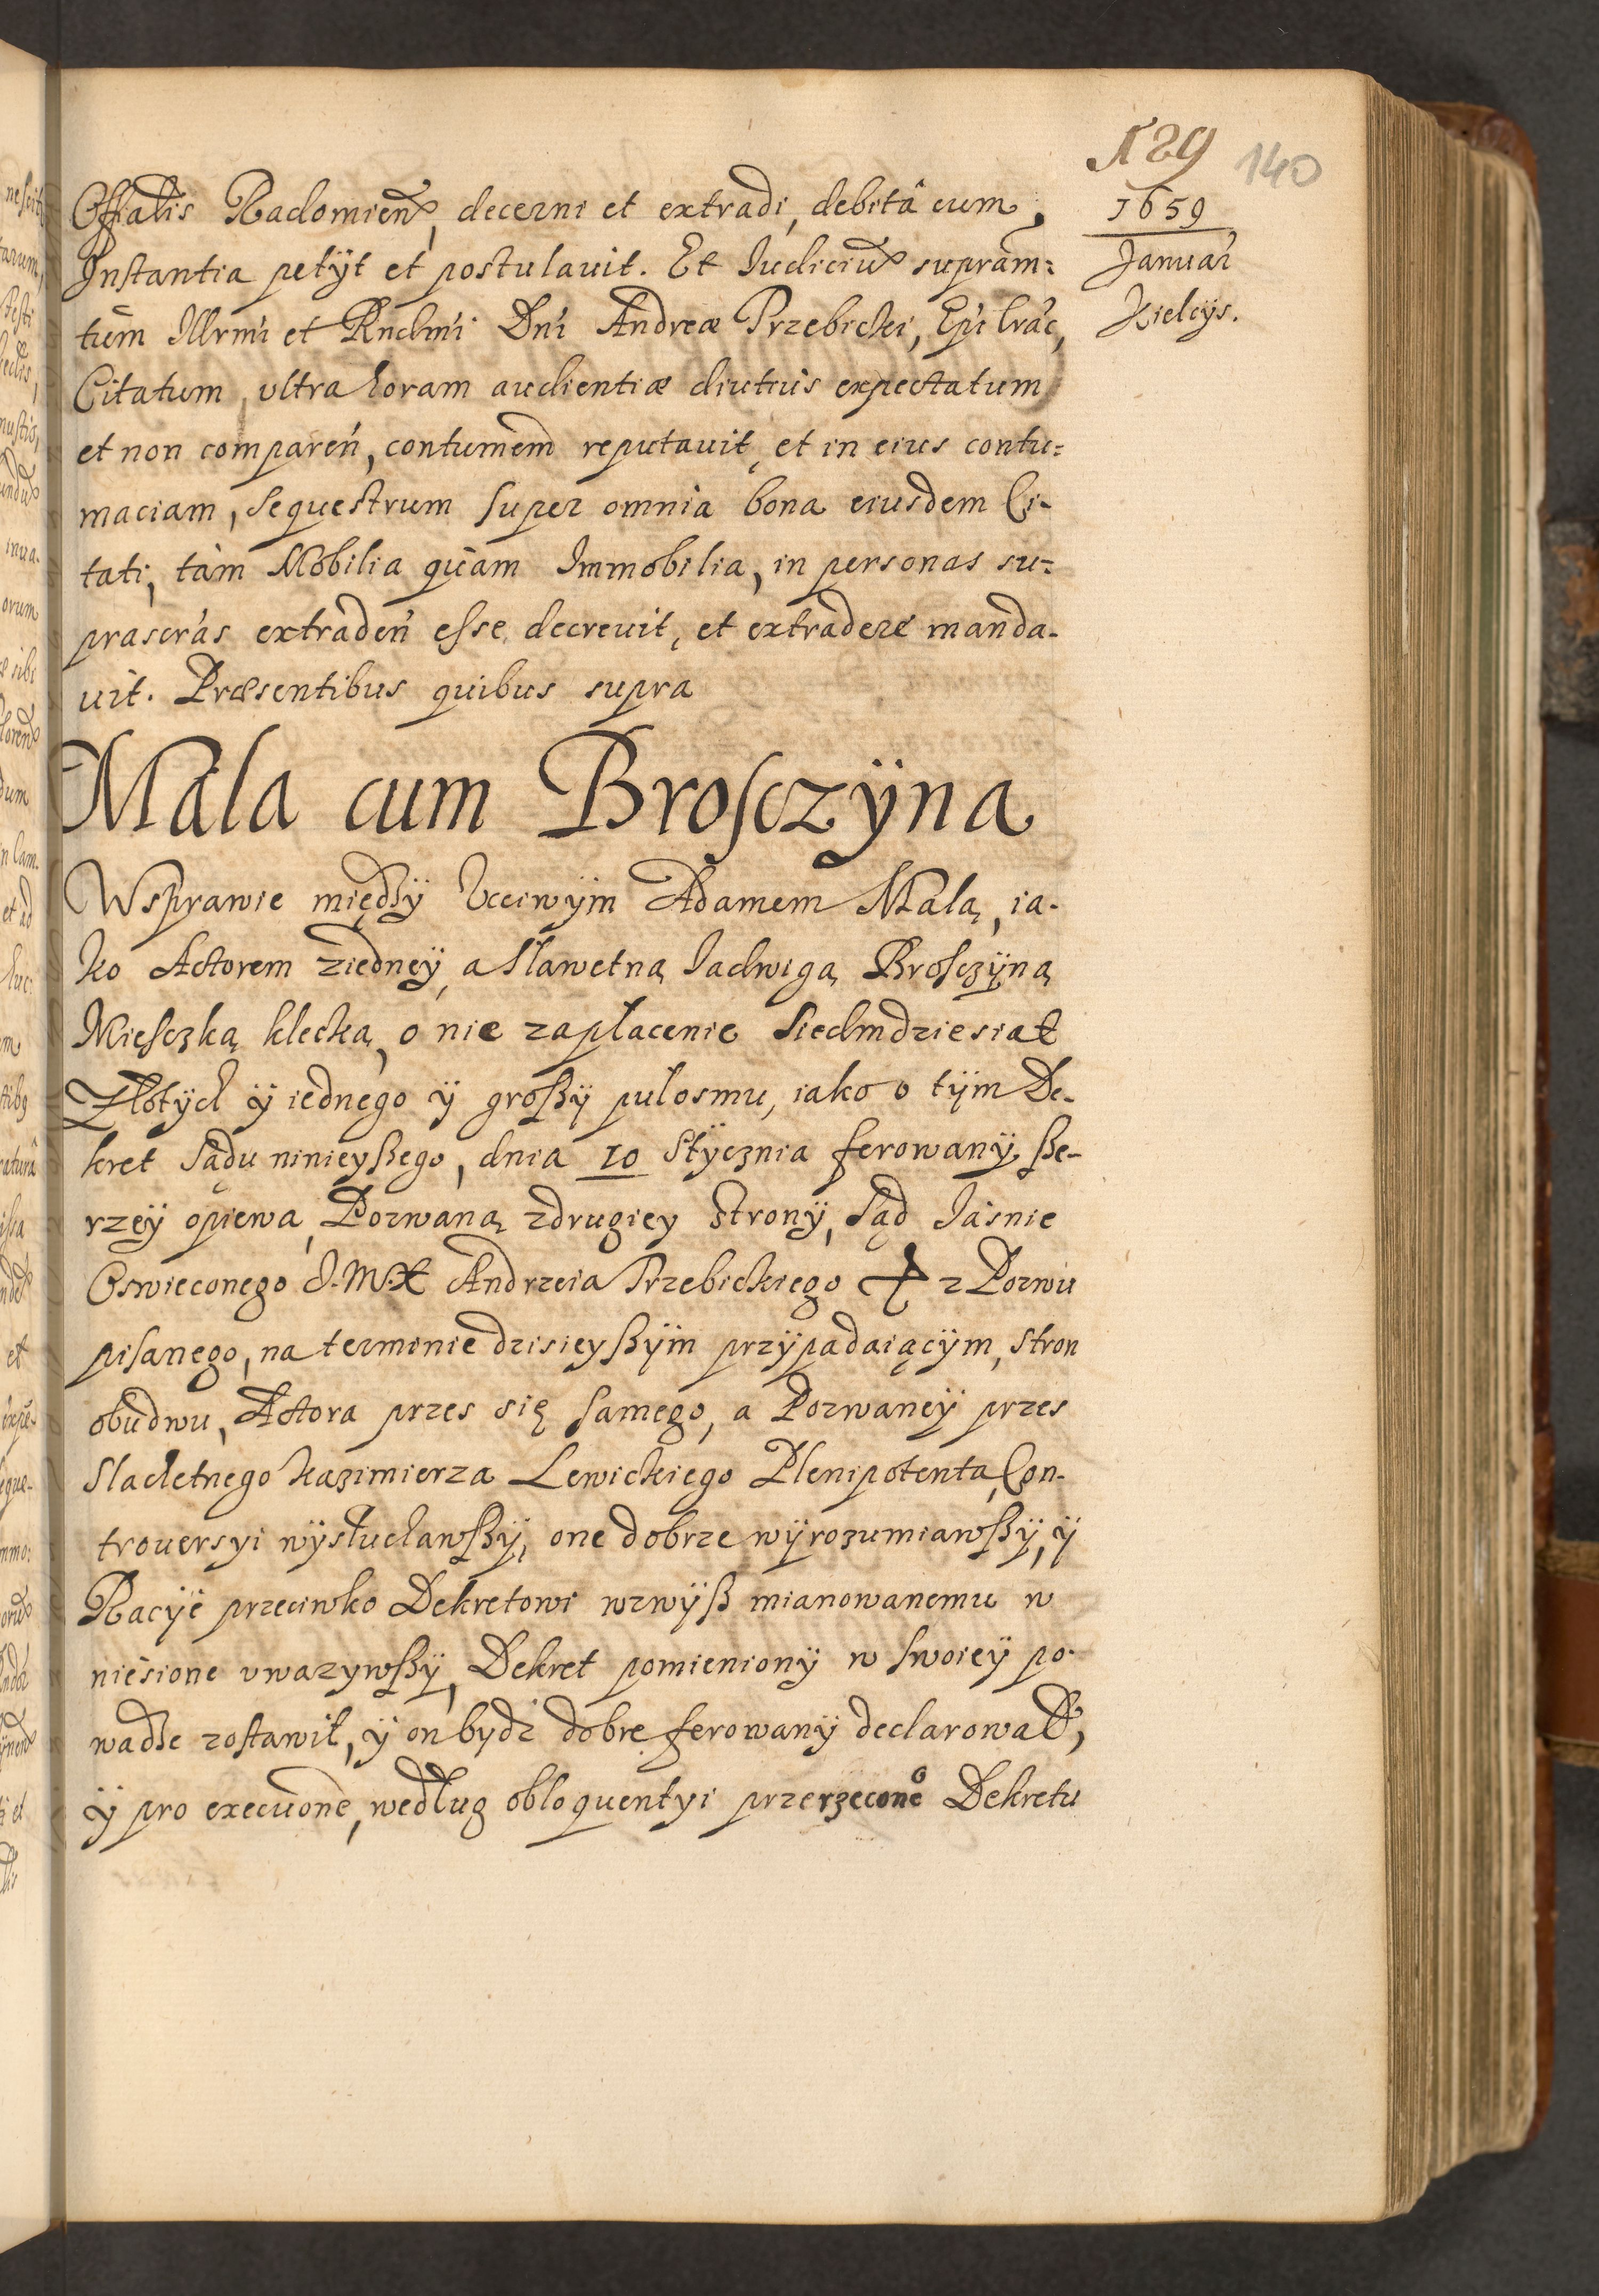 529 140
1659
Januar
Kielcys.
Offalis Radomien, decerni et extradi, debitâ cum
Instantia petÿt et postulauit. Et Iudiciu supram=
tum Illrmi et Rndmi Dni Andreæ Trzebicki, Epi Crac,
Citatum, vltra horam audientiæ diutius expectatum
et non comparen, contumem reputauit, et in eius contu=
maciam, Sequestrum super omnia bona eiusdem Ci-
tati, tàm Mobilia quàm Immobilia, in personas su=
prascras extraden esse decreuit, et extradere manda-
uit. Præsentibus quibus supra
Mala cum Brosczÿna
Wsprawie międzÿ Vcciwÿm Adamem Malą, ia-
ko Actorem ziedneÿ, a Sławetną Iadwigą Brosczÿną
Miesczką klecką, o nie zapłacenie Siedmdziesiąt
Złotych ÿ iednego ÿ großÿ pulosmu, iako o tÿm De-
kret Sądu ninieyßego, dnia 10 Stÿcznia ferowanÿ ße-
rzeÿ opiewa, Pozwaną zdrugiey Stronÿ, Sąd Iasnie
Oswieconego I.M.X Andrzeia Trzebickiego z Pozwu
pisanego, na terminie dzisieyßÿm przÿpadaiącÿm, stron
obudwu, Actora przes się samego, a Pozwaneÿ przes
Slachetnego Kazimierza Lewickiego Plenipotenta, Con-
trouersyi wÿsłuchawßÿ, one dobrze wÿrozumiawßÿ, ÿ
Racÿe przeciwko Dekretowi wzwÿß mianowanemu w
niesione vwazywßÿ, Dekret pomienionÿ w swoieÿ po-
wadze zostawił, ÿ on bydz dobre ferowanÿ declarował,
ÿ pro execuone, według obloquentyi przerzecone͛o Dekretu